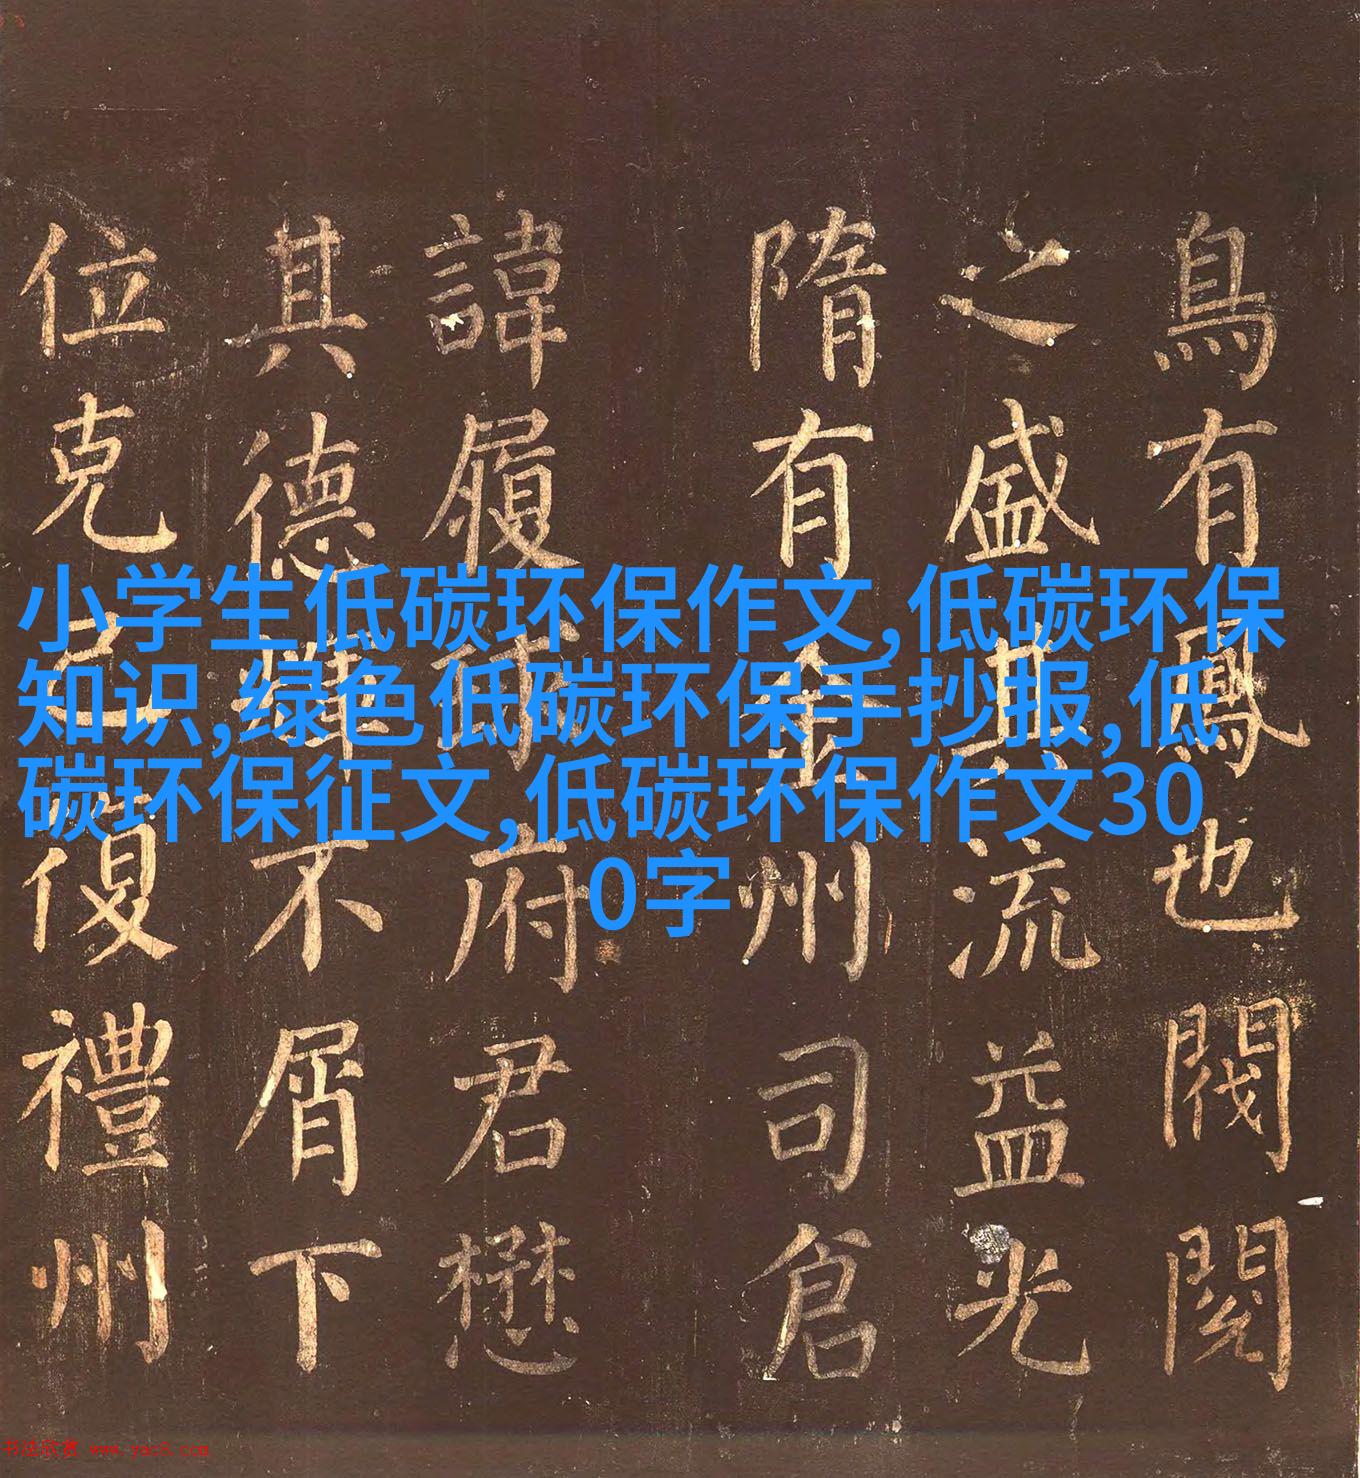 鳥有鳳也閥閱
之盛其流益光
隋有金州司倉
諱履府君懋
其德不屑下
位克己復禮州
小学生低碳环保作文,低碳环保
知识,绿色低碳环保手抄报,低
碳环保征文,低碳环保作文30
0字
书法欣赏 www.yac8.com